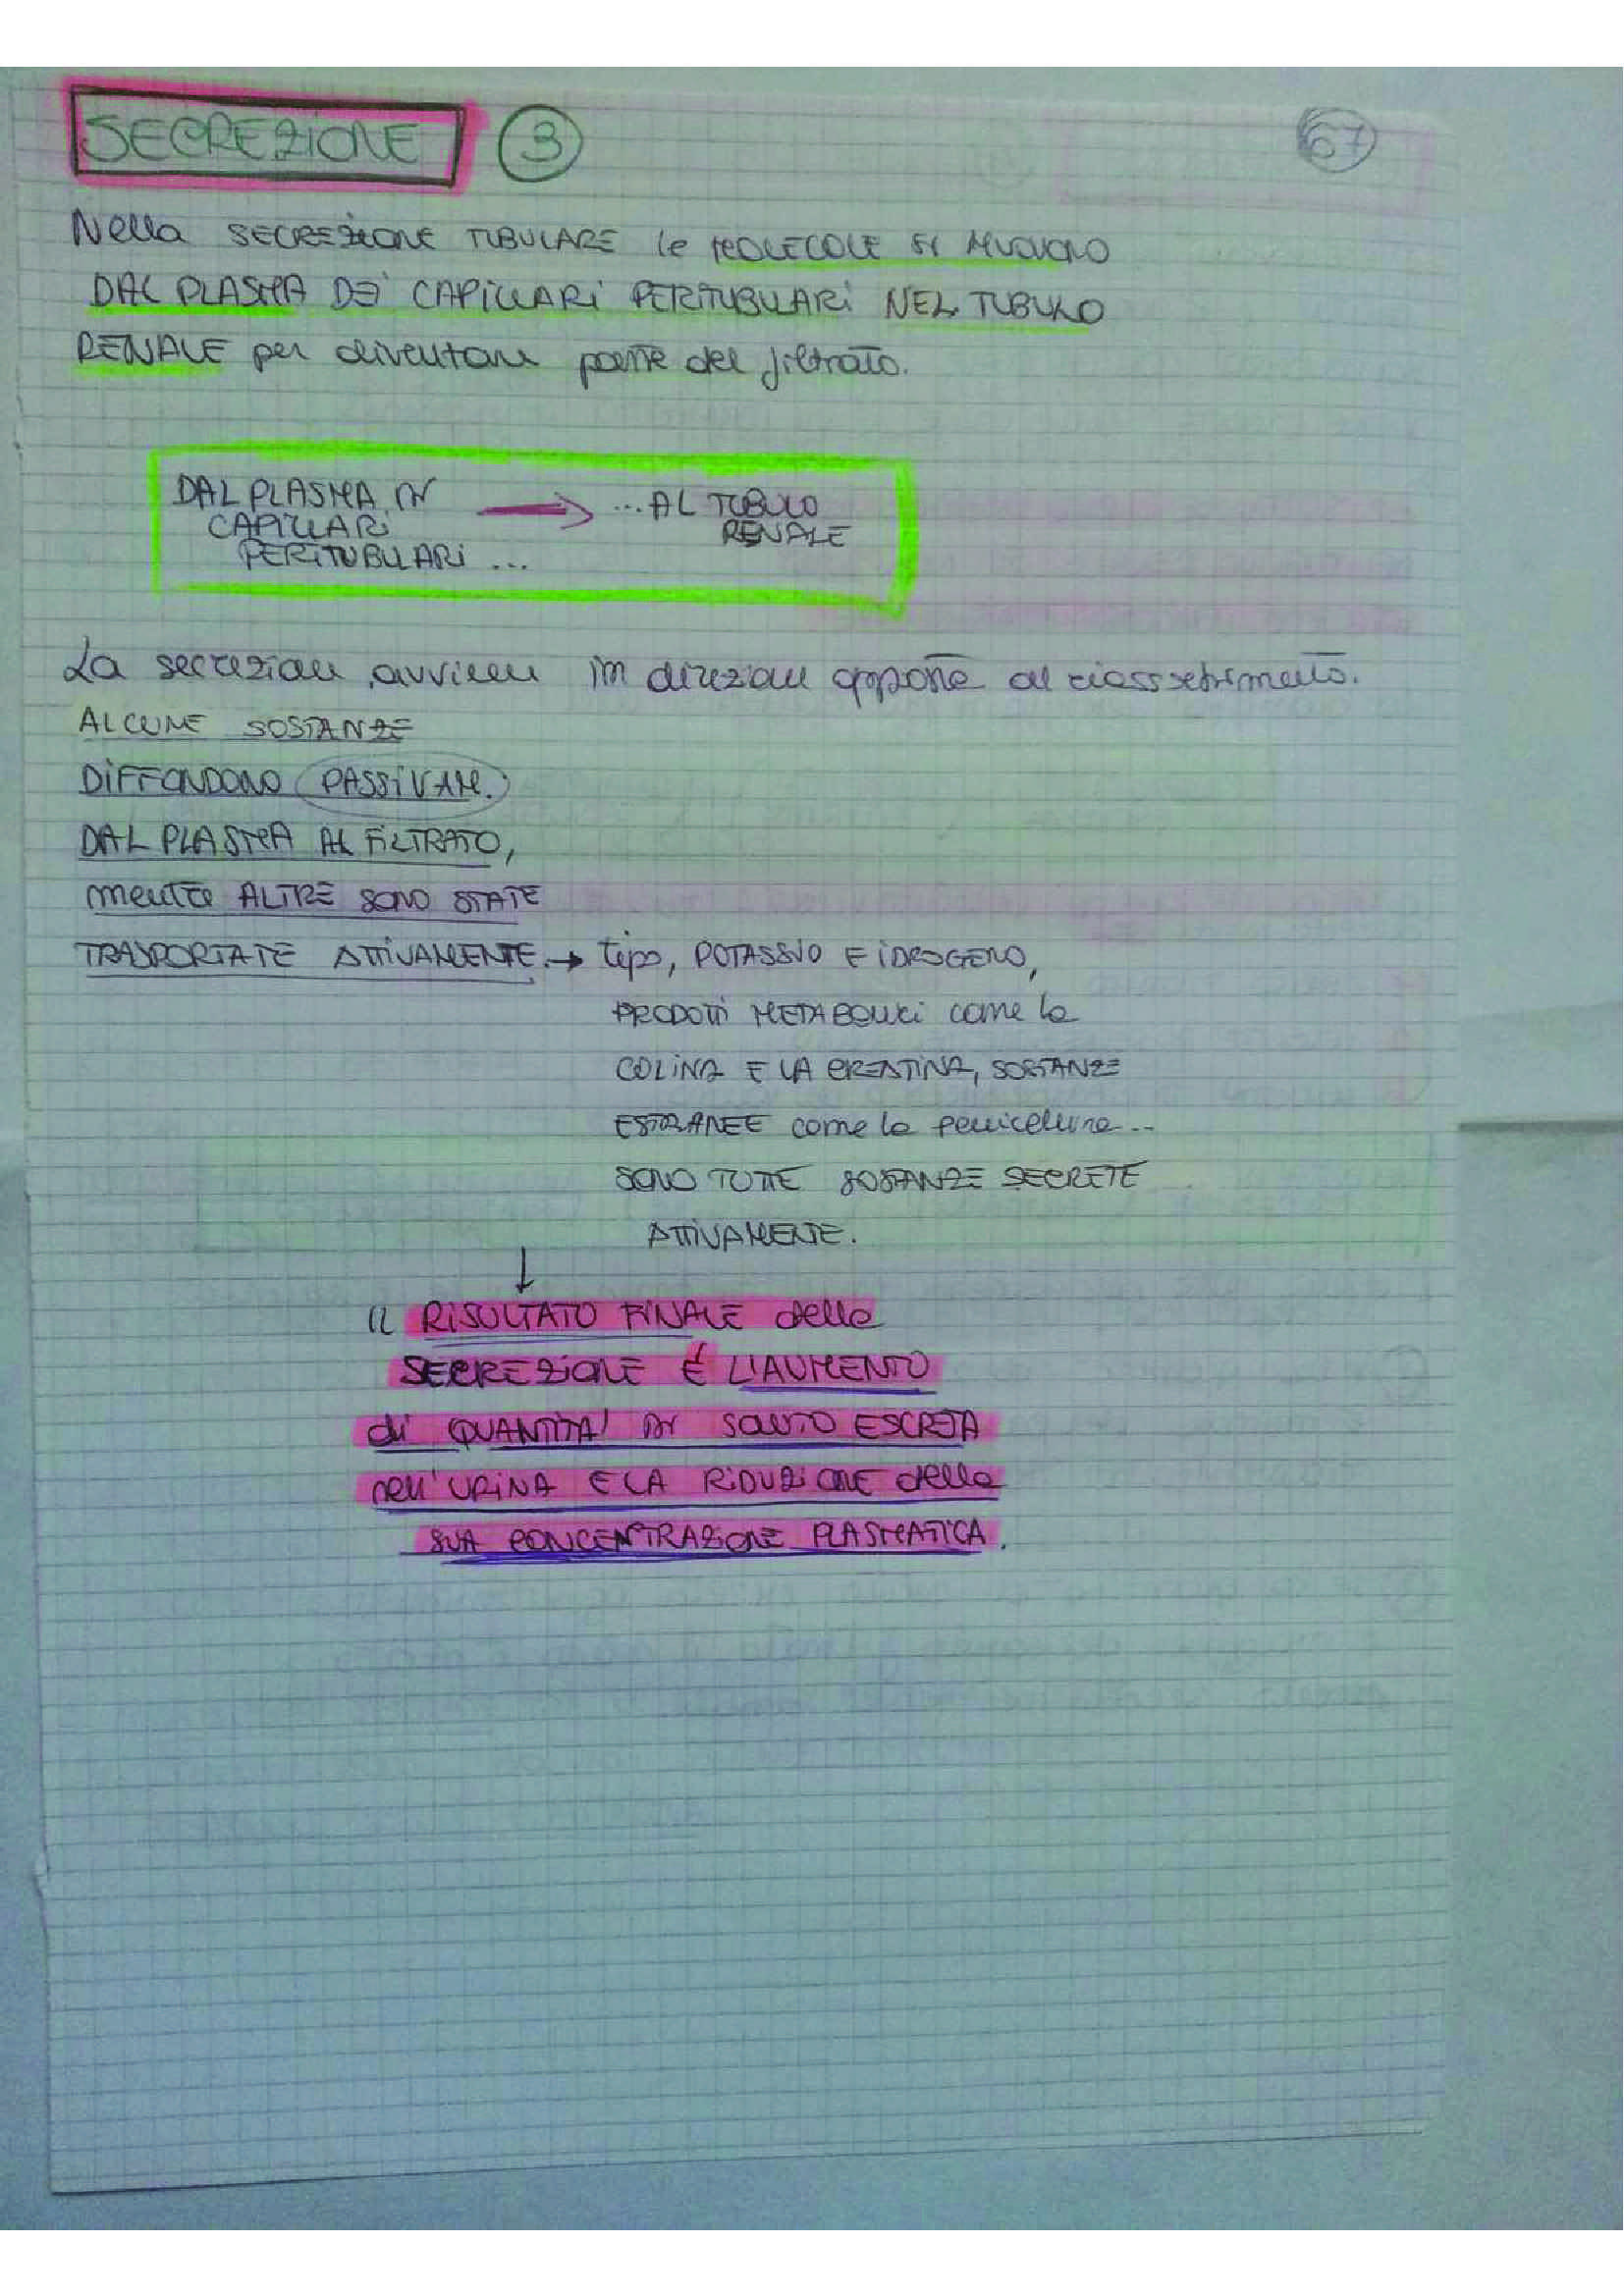 SECREZIONE 3
67
Nella SECREZIONE TUBULARE le MOLECOLE SI MUOVONO
DAL PLASMA DEI CAPILLARI PERITUBULARI NEL TUBULO
RENALE per diventare parte del filtrato.
DAL PLASMA IN → ...AL TUBULO
CAPILLARI RENALE
PERITUBULARI ...
La secrezione avviene in direzione opposta al riassorbimento.
ALCUNE SOSTANZE
DIFFONDONO PASSIVAM.
DAL PLASMA AL FILTRATO,
mentre ALTRE SONO STATE
TRASPORTATE ATTIVAMENTE. → tipo, POTASSIO E IDROGENO,
PRODOTTI METABOLICI come la
COLINA E LA CREATINA, SOSTANZE
ESTRANEE come la penicellina...
SONO TUTTE SOSTANZE SECRETE
ATTIVAMENTE.
↓
IL RISULTATO FINALE della
SECREZIONE É L'AUMENTO
di QUANTITA' DI SOLUTO ESCRETA
nell'URINA E LA RIDUZIONE della
SUA CONCENTRAZIONE PLASMATICA.